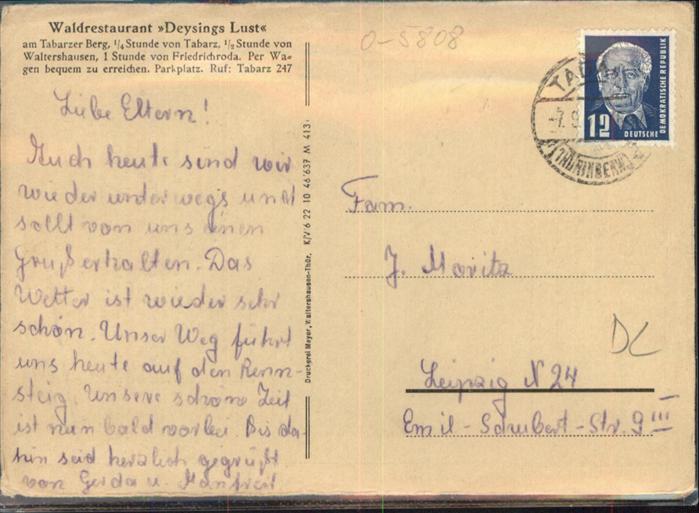 Waldrestaurant »Deysings Lust«
am Tabarzer Berg, ¼ Stunde von Tabarz, ½ Stunde von
Waltershausen, 1 Stunde von Friedrichroda. Per Wa-
gen bequem zu erreichen. Parkplatz. Ruf: Tabarz 247
Liebe Eltern!
Auch heute sind wir
wieder unterwegs und
sollt von uns einen
Gruß erhalten. Das
Wetter ist wieder sehr
schön. Unser Weg führt
uns heute auf den Renn-
steig. Unsere schöne Zeit
ist nun bald vorbei. Bis da-
hin seid herzlich gegrüßt
von Gerda u. Manfred
Druckerei Meyer, Waltershausen-Thür. K/V 6 22 10 46 637 M 413
0-5808
TABARZ
-7.9
(THÜRINGERW.)
12
DEUTSCHE
DEMOKRATISCHE REPUBLIK
Fam.
J. Moritz
DC
Leipzig N 24
Emil-Schubert-Str. 9 III